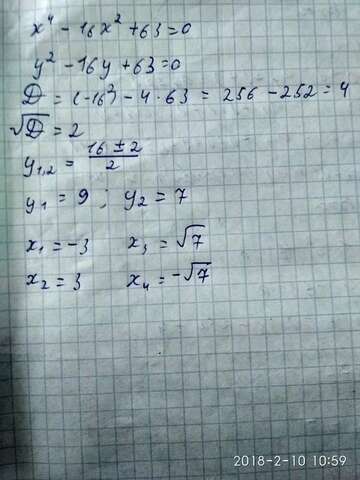 x⁴ - 16x² + 63 = 0
y² - 16y + 63 = 0
D = (-16²) - 4 · 63 = 256 - 252 = 4
√D = 2
y₁,₂ = (16 ± 2)/2
y₁ = 9 ; y₂ = 7
x₁ = -3 x₃ = √7
x₂ = 3 x₄ = -√7
2018-2-10 10:59